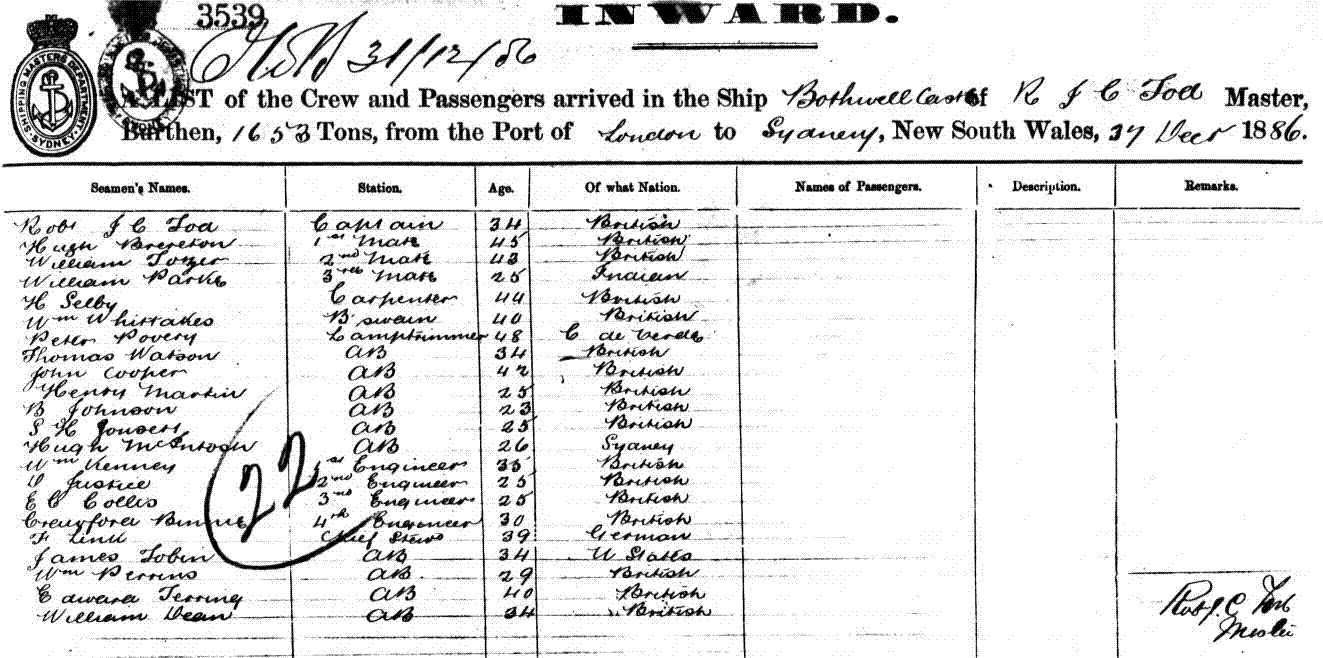 3539
INWARD.
31/12/86
SHIPPING MASTERS DEPARTMENT SYDNEY
A LIST of the Crew and Passengers arrived in the Ship Bothwell Castle of R J C Tod Master,
Burthen, 1653 Tons, from the Port of London to Sydney, New South Wales, Decr 1886.
Seamen's Names. Station. Age. Of what Nation. Names of Passengers. Description. Remarks.
Robt J C Tod Captain 34 British
Hugh Brereton 1st Mate 45 British
William Tozer 2nd Mate 43 British
William Parke 3rd Mate 25 Indian
H Selby Carpenter 44 British
Wm Whittakes B'swain 40 British
Peter Povery Lamptrimmer 48 C de Verde
Thomas Watson AB 34 British
John Cooper AB 42 British
Henry Martin AB 25 British
B Johnson AB 23 British
S H AB 25 British
Hugh McIntosh AB 26 Sydney
Wm Kenney 1st Engineer 35 British
Justice 2nd Engineer 25 British
E C Collis 3rd Engineer 25 British
Crawford Binnie 4th Engineer 30 British
F Link Chief Stewd 39 German
James Tobin AB 34 U States
Wm Perrins AB 29 British
Edward Terring AB 40 British
William Dean AB 34 British
22
Robt J. C. Tod
Master